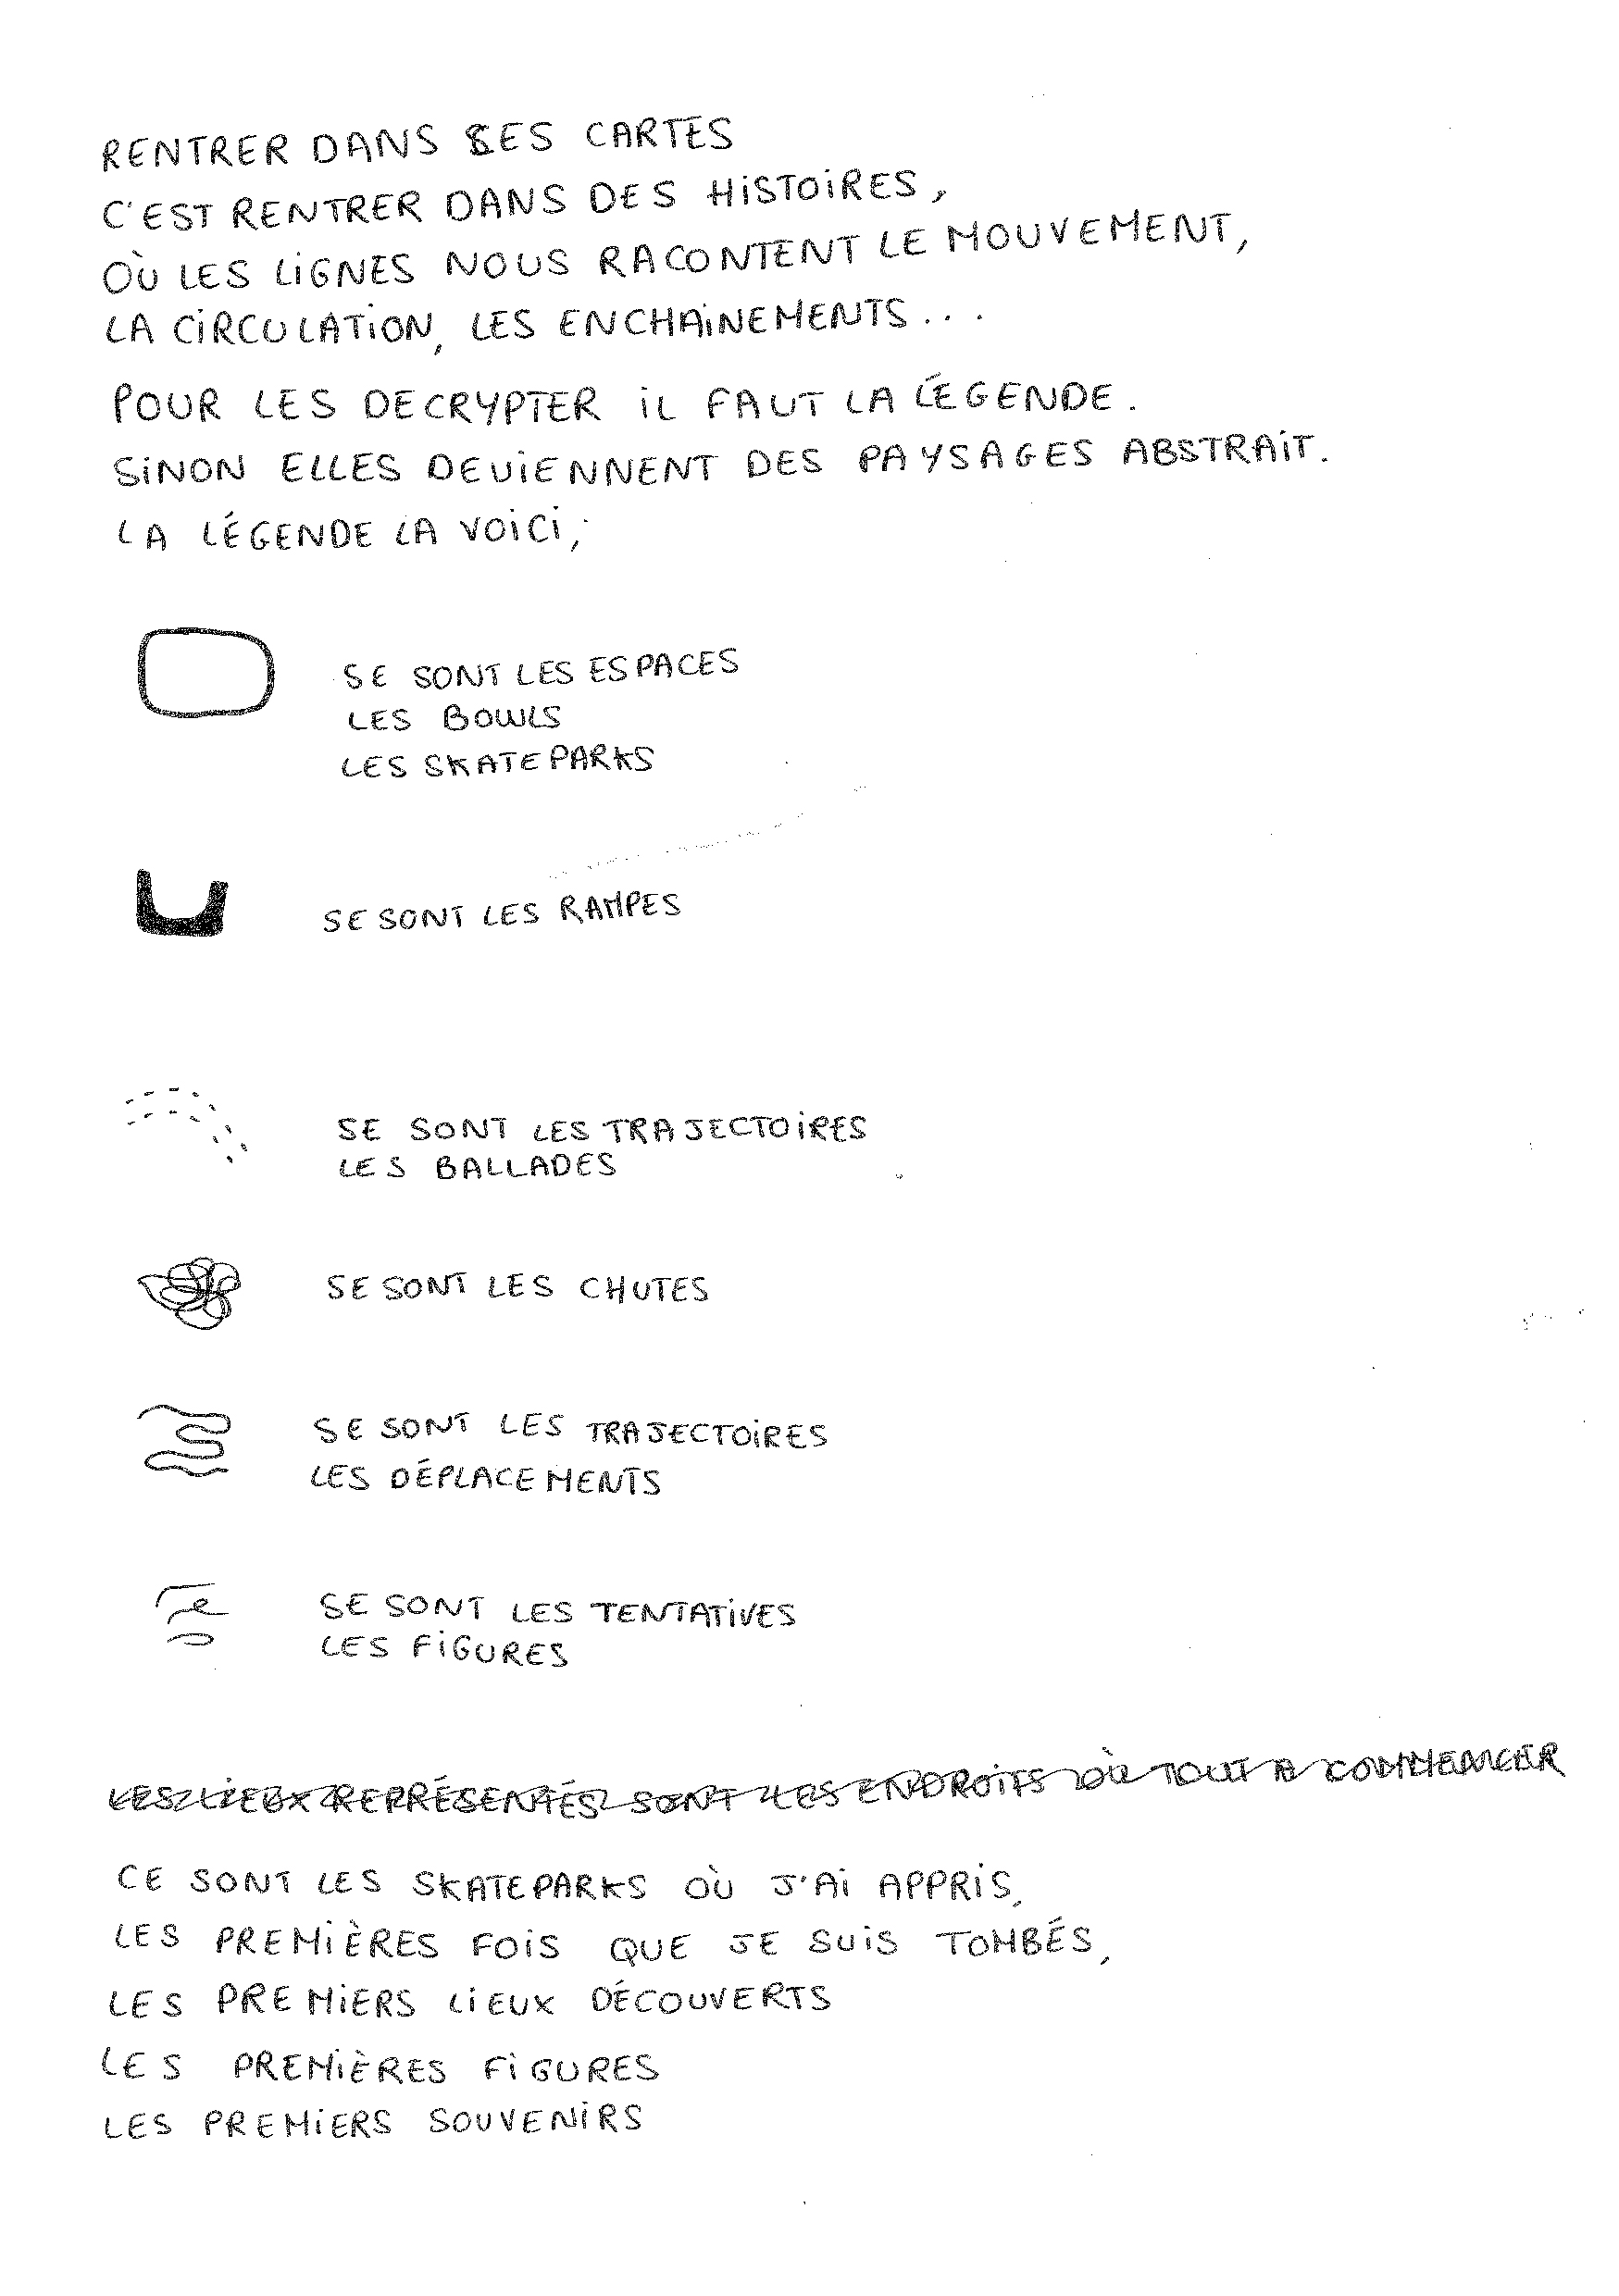 RENTRER DANS SES CARTES
C'EST RENTRER DANS DES HISTOIRES,
OÙ LES LIGNES NOUS RACONTENT LE MOUVEMENT,
LA CIRCULATION, LES ENCHAINEMENTS...
POUR LES DECRYPTER IL FAUT LA LÉGENDE.
SINON ELLES DEVIENNENT DES PAYSAGES ABSTRAIT.
LA LÉGENDE LA VOICI;
SE SONT LES ESPACES
LES BOWLS
LES SKATEPARKS
SE SONT LES RAMPES
SE SONT LES TRAJECTOIRES
LES BALLADES
SE SONT LES CHUTES
SE SONT LES TRAJECTOIRES
LES DÉPLACEMENTS
SE SONT LES TENTATIVES
LES FIGURES
LES LIEUX REPRÉSENTÉS SONT LES ENDROITS OÙ TOUT A COMMENCER
CE SONT LES SKATEPARKS OÙ J'AI APPRIS,
LES PREMIÈRES FOIS QUE JE SUIS TOMBÉS,
LES PREMIERS LIEUX DÉCOUVERTS
LES PREMIÈRES FIGURES
LES PREMIERS SOUVENIRS